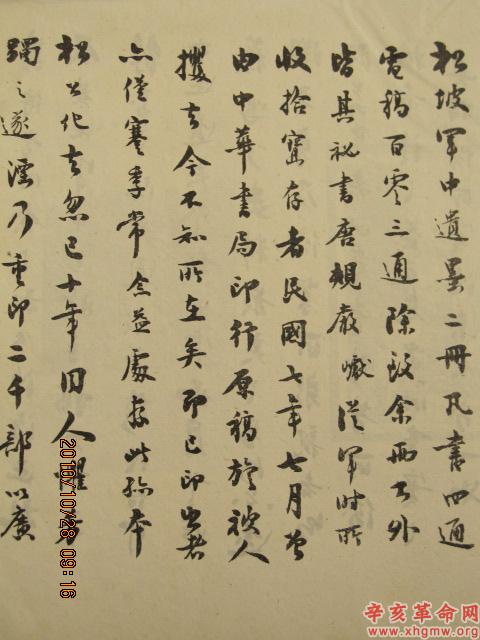 松坡軍中遺墨二冊凡書四通
電稿百零三通除致余兩外
皆其祕書唐規嚴巘從軍時所
收拾寶存者民國七年七月曾
由中華書局印行原稿旋被人
攫去今不知所在矣即已印出者
亦僅蹇季常念益處存此孤本
松公化去忽已十年旧人懼芳
躅之遂湮乃重印二千部以廣
2018/10/28 09:16
辛亥革命网
www.xhgmw.org